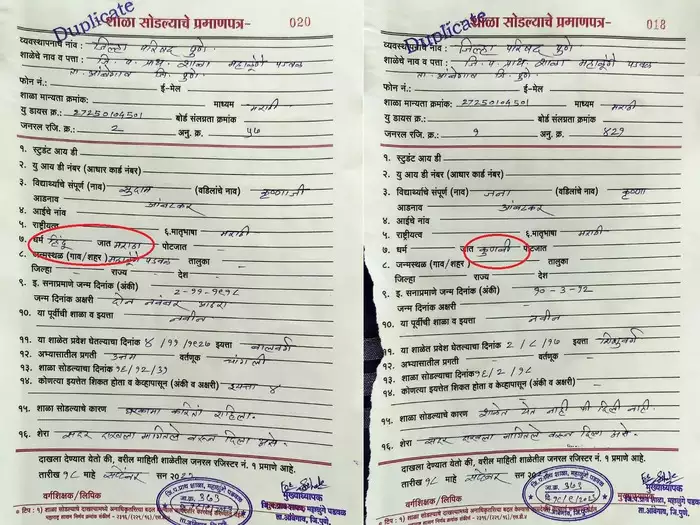 Duplicate
शाळा सोडल्याचे प्रमाणपत्र- 020
व्यवस्थापनाचे नांव : जिल्हा परिषद पुणे
शाळेचे नाव व पत्ता : जि. प. प्राथ. शाळा महाळुंगे पडवळ
ता. आंबेगाव जि. पुणे
फोन नं.: ई-मेल
शाळा मान्यता क्रमांक: माध्यम मराठी
यु डायस क्र.: 27250104501 बोर्ड संलग्नता क्रमांक
जनरल रजि. क्र.: 2 अनु. क्र. ५७
१. स्टुडंट आय डी
२. यु आय डी नंबर (आधार कार्ड नंबर)
३. विद्यार्थ्याचे संपूर्ण (नाव) सुदाम (वडिलांचे नाव) कृष्णाजी
आडनाव आंबटकर
४. आईचे नांव
५. राष्ट्रीयत्व ६.मातृभाषा मराठी
७. धर्म हिंदू जात मराठा पोटजात
८. जन्मस्थळ (गाव/शहर) महाळुंगे पडवळ तालुका
जिल्हा राज्य देश
९. इ. सनाप्रमाणे जन्म दिनांक (अंकी) २-११-१९१८
जन्म दिनांक (अक्षरी) दोन नवंबर अठरा
१०. या पूर्वीची शाळा व इयत्ता नवीन
११. या शाळेत प्रवेश घेतल्याचा दिनांक ४/११/१९२७ इयत्ता बालवर्ग
१२. अभ्यासातील प्रगती उत्तम वर्तणूक चांगली
१३. शाळा सोडल्याचा दिनांक १८/१२/३१
१४. कोणत्या इयत्तेत शिकत होता व केव्हापासून (अंकी व अक्षरी) इयत्ता ४
१५. शाळा सोडल्याचे कारण घरकामा करिता राहिला.
१६. शेरा सदर दाखला मागितले वरून दिला असे.
दाखला देण्यात येतो की, वरील माहिती शाळेतील जनरल रजिस्टर नं. १ प्रमाणे आहे.
तारीख १८ माहे सप्टेंबर सन
वर्गशिक्षक/लिपिक
जा.क्र. 363
मुख्याध्यापक
जि.प.प्राथ.शाळा, महाळुंगे पडवळ
ता.आंबेगाव, जि.पुणे
Duplicate
शाळा सोडल्याचे प्रमाणपत्र- 018
व्यवस्थापनाचे नांव : जिल्हा परिषद पुणे
शाळेचे नाव व पत्ता : जि. प. प्राथ. शाळा महाळुंगे पडवळ
ता. आंबेगाव जि. पुणे
फोन नं.: ई-मेल
शाळा मान्यता क्रमांक: माध्यम मराठी
यु डायस क्र.: 27250104501 बोर्ड संलग्नता क्रमांक
जनरल रजि. क्र.: १ अनु. क्र. ४२९
१. स्टुडंट आय डी
२. यु आय डी नंबर (आधार कार्ड नंबर)
३. विद्यार्थ्याचे संपूर्ण (नाव) जना (वडिलांचे नाव) कृष्णा
आडनाव आंबटकर
४. आईचे नांव
५. राष्ट्रीयत्व ६.मातृभाषा मराठी
७. धर्म जात कुणबी पोटजात
८. जन्मस्थळ (गाव/शहर) तालुका
जिल्हा राज्य देश
९. इ. सनाप्रमाणे जन्म दिनांक (अंकी) १०-३-१२
जन्म दिनांक (अक्षरी)
१०. या पूर्वीची शाळा व इयत्ता नवीन
११. या शाळेत प्रवेश घेतल्याचा दिनांक 2/८/१७ इयत्ता शिशुवर्ग
१२. अभ्यासातील प्रगती वर्तणूक
१३. शाळा सोडल्याचा दिनांक १८/२/१८
१४. कोणत्या इयत्तेत शिकत होता व केव्हापासून (अंकी व अक्षरी)
१५. शाळा सोडल्याचे कारण शाळेत येत नाही फी दिली नाही.
१६. शेरा सदर दाखला मागितले वरून दिला असे.
दाखला देण्यात येतो की, वरील माहिती शाळेतील जनरल रजिस्टर नं. १ प्रमाणे आहे.
तारीख १८ माहे सप्टेंबर सन
वर्गशिक्षक/लिपिक
जा.क्र. 363
मुख्याध्यापक
जि.प.प्राथ.शाळा, महाळुंगे पडवळ
ता.आंबेगाव, जि.पुणे